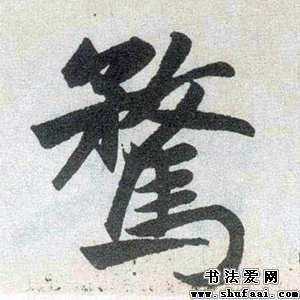 騖
书法爱网
www.shufaai.com